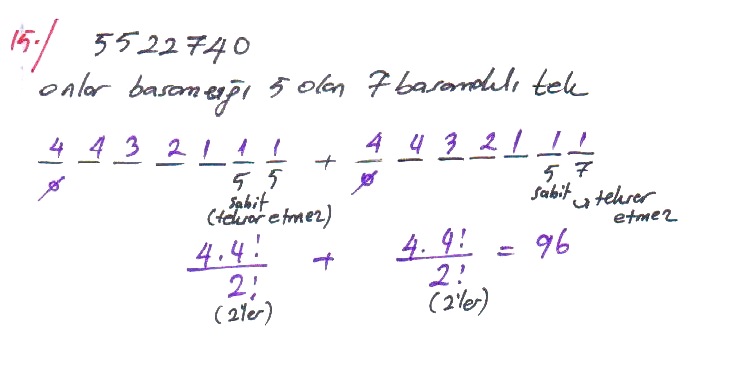 15./ 5522740
onlar basamağı 5 olan 7 basamaklı tek
4 4 3 2 1 1 1 + 4 4 3 2 1 1 1
0 5 5 0 5 7
sabit sabit ↪ tekrar
(tekrar etmez) etmez
4.4! + 4.4! = 96
2! 2!
(2'ler) (2'ler)